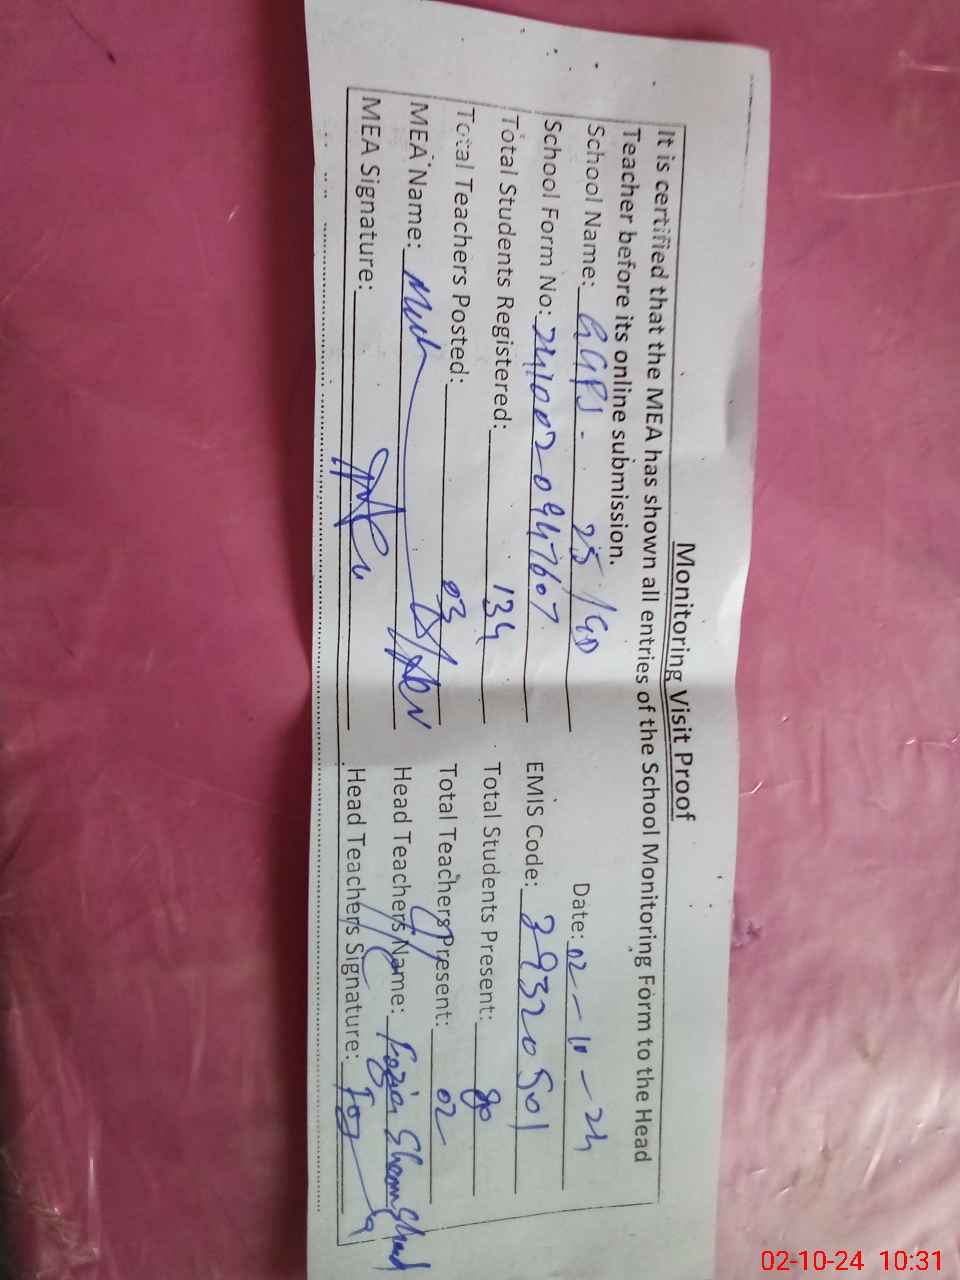 Monitoring Visit Proof
It is certified that the MEA has shown all entries of the School Monitoring Form to the Head
Teacher before its online submission.
Date: 02-10-24
School Name: GGPS. 25/GD
School Form No: 241002-0947607 EMIS Code: 39320501
Total Students Registered: 134 Total Students Present: 80
Total Teachers Posted: 03 Total Teachers Present: 02
MEA Name: Head Teachers Name: Fozia
MEA Signature: Head Teachers Signature:
02-10-24 10:31